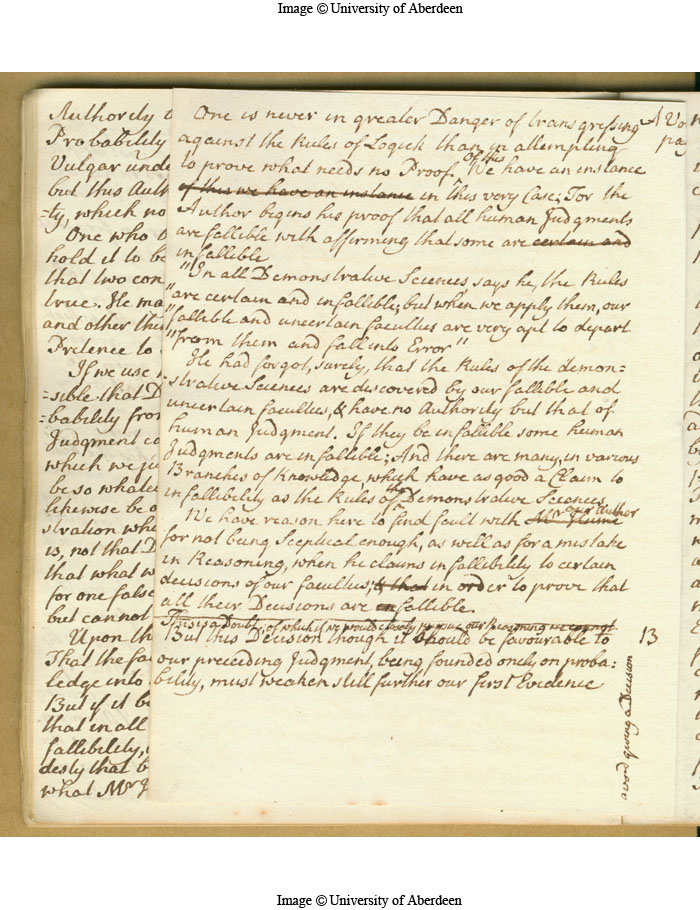 Image © University of Aberdeen
One is never in greater Danger of transgressing
against the Rules of Logick than in attempting
to prove what needs no Proof. Of this We have an instance
of this we have an instance in this very Case; For the
Author begins his proof that all human Judgments
are fallible with affirming that some are certain and
infallible
"In all Demonstrative Sciences, says he, the Rules
"are certain and infallible; but when we apply them, our
"fallible and uncertain faculties are very apt to depart
"from them and fall into Error"
He had forgot, surely, that the Rules of the demon=
strative Sciences are discovered by our fallible and
uncertain faculties, & have no Authority but that of
human Judgment. If they be infallible some human
Judgments are infallible; And there are many, in various
Branches of Knowledge, which have as good a Claim to
infallibility as the Rules of the Demonstrative Sciences
We have reason here to find fault with Mr Hume our Author
for not being Sceptical enough, as well as for a mistake
in Reasoning, when he claims infallibility to certain
decisions of our faculties, & that in order to prove that
all their Decisions are infallible.
This is a Doubt, of which if we would our Reasoning we cannot
But this Decision though it should be favourable to
our preceding Judgment, being founded onely on proba:
bility, must weaken still further our first Evidence
Authority
Probability
Vulgar unde
but this Auth
=ty, which no
One who
hold it to be
that two con
true. He ma
and other thi
Pretence to
If we use
=sible that D
=bability from
Judgment ca
which we ju
be so whate
likewise be o
stration whe
is, not that D
that what w
for one false
but cannot
Upon th
That the fa
ledge into
But if it be
that in all
fallibility,
desty that b
what Mr
A
pa
B
over giving a Decision
Image © University of Aberdeen